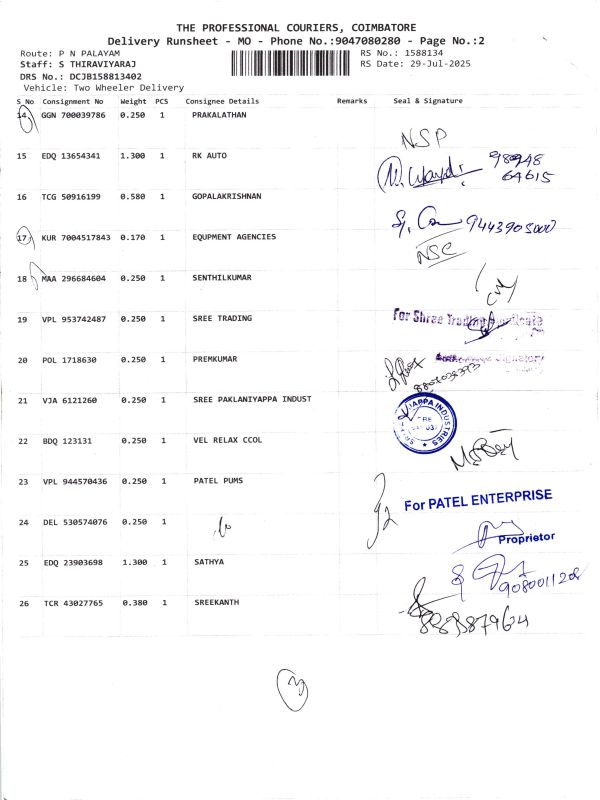 THE PROFESSIONAL COURIERS, COIMBATORE
Delivery Runsheet - MO - Phone No.:9047080280 - Page No.:2
Route: P N PALAYAM
RS No.: 1588134
Staff: S THIRAVIYARAJ
RS Date: 29-Jul-2025
DRS No.: DCJB158813402
Vehicle: Two Wheeler Delivery
S No Consignment No Weight PCS Consignee Details Remarks Seal & Signature
14 GGN 700039786 0.250 1 PRAKALATHAN
NSP
15 EDQ 13654341 1.300 1 RK AUTO
98948
64615
16 TCG 50916199 0.580 1 GOPALAKRISHNAN
9443905000
17 KUR 7004517843 0.170 1 EQUPMENT AGENCIES
NSC
18 MAA 296684604 0.250 1 SENTHILKUMAR
19 VPL 953742487 0.250 1 SREE TRADING
For Shree Trading Syndicate
20 POL 1718630 0.250 1 PREMKUMAR
Authorised Signatory
21 VJA 6121260 0.250 1 SREE PAKLANIYAPPA INDUST
IAPPA INDUSTRIES
22 BDQ 123131 0.250 1 VEL RELAX CCOL
23 VPL 944570436 0.250 1 PATEL PUMS
For PATEL ENTERPRISE
24 DEL 530574076 0.250 1
Proprietor
25 EDQ 23903698 1.300 1 SATHYA
26 TCR 43027765 0.380 1 SREEKANTH